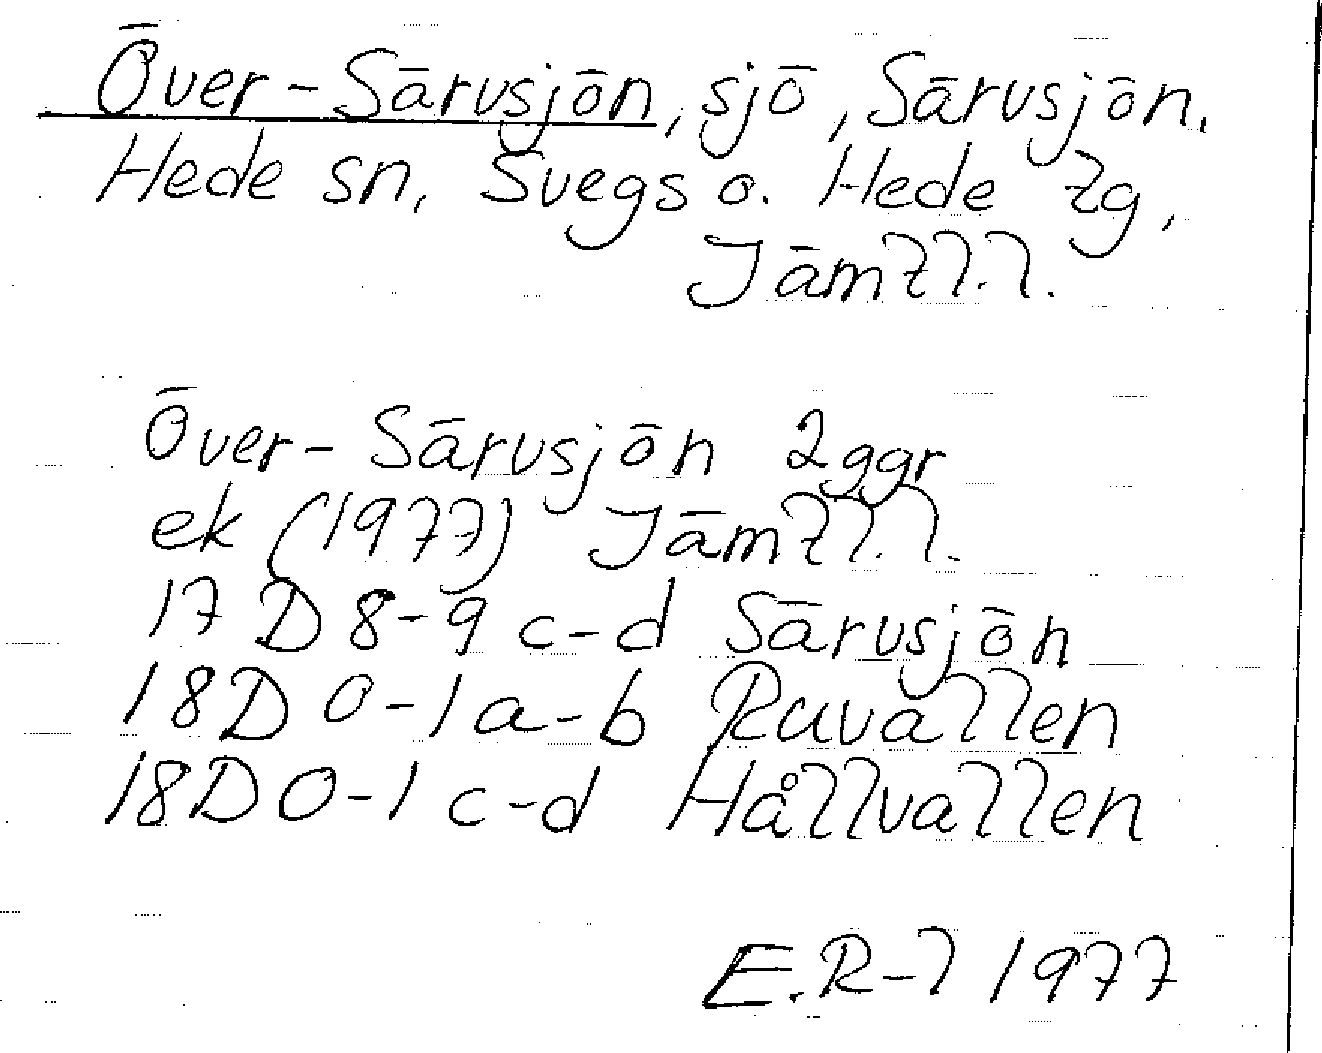 Över-Särvsjön, sjö, Särvsjön.
Hede sn, Svegs o. Hede tg,
Jämtl.l.
Över-Särvsjön 2ggr
ek (1977) Jämtl.l.
17 D 8-9 c-d Särvsjön
18D 0-1 a-b Ruvallen
18D 0-1 c-d Hållvallen
E.R-l 1977